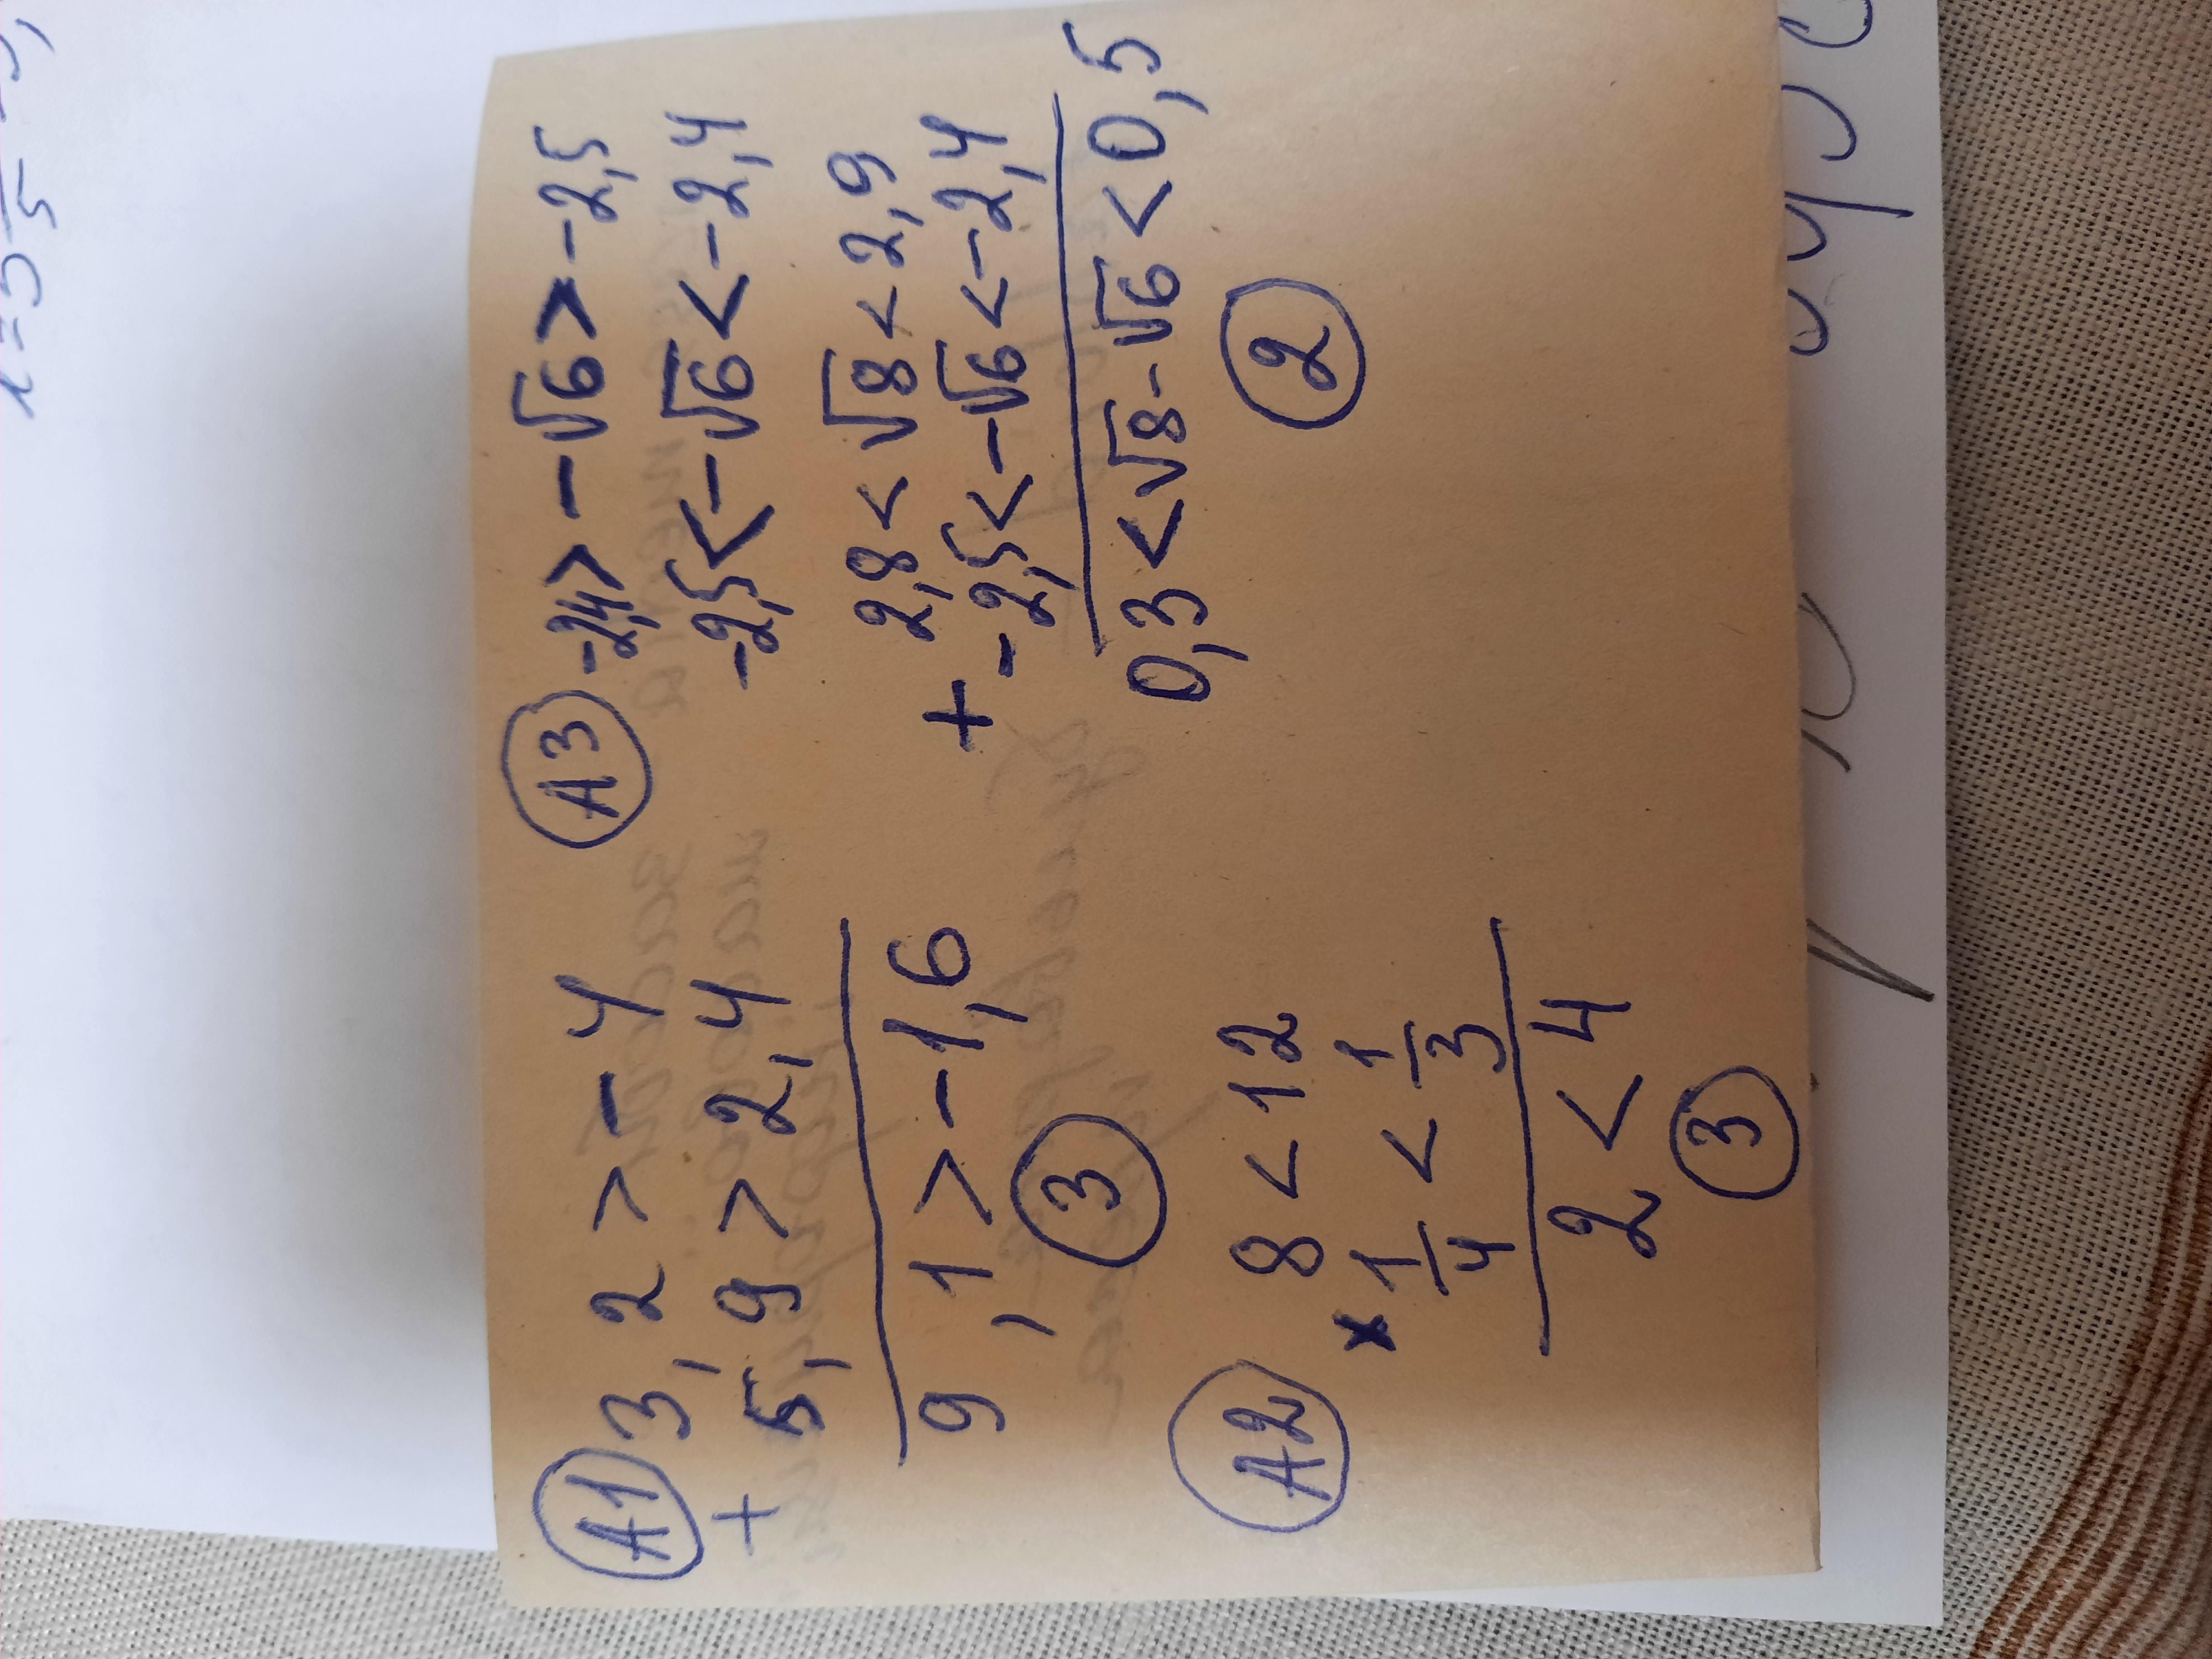 A1 3,2 > -4
+ 5,9 > 2,4
9,1 > -1,6
3
A2 8 < 12
× 1/4 < 1/3
2 < 4
3
A3 -2,4 > -√6 > -2,5
-2,5 < -√6 < -2,4
2,8 < √8 < 2,9
+ -2,5 < -√6 < -2,4
0,3 < √8 - √6 < 0,5
2